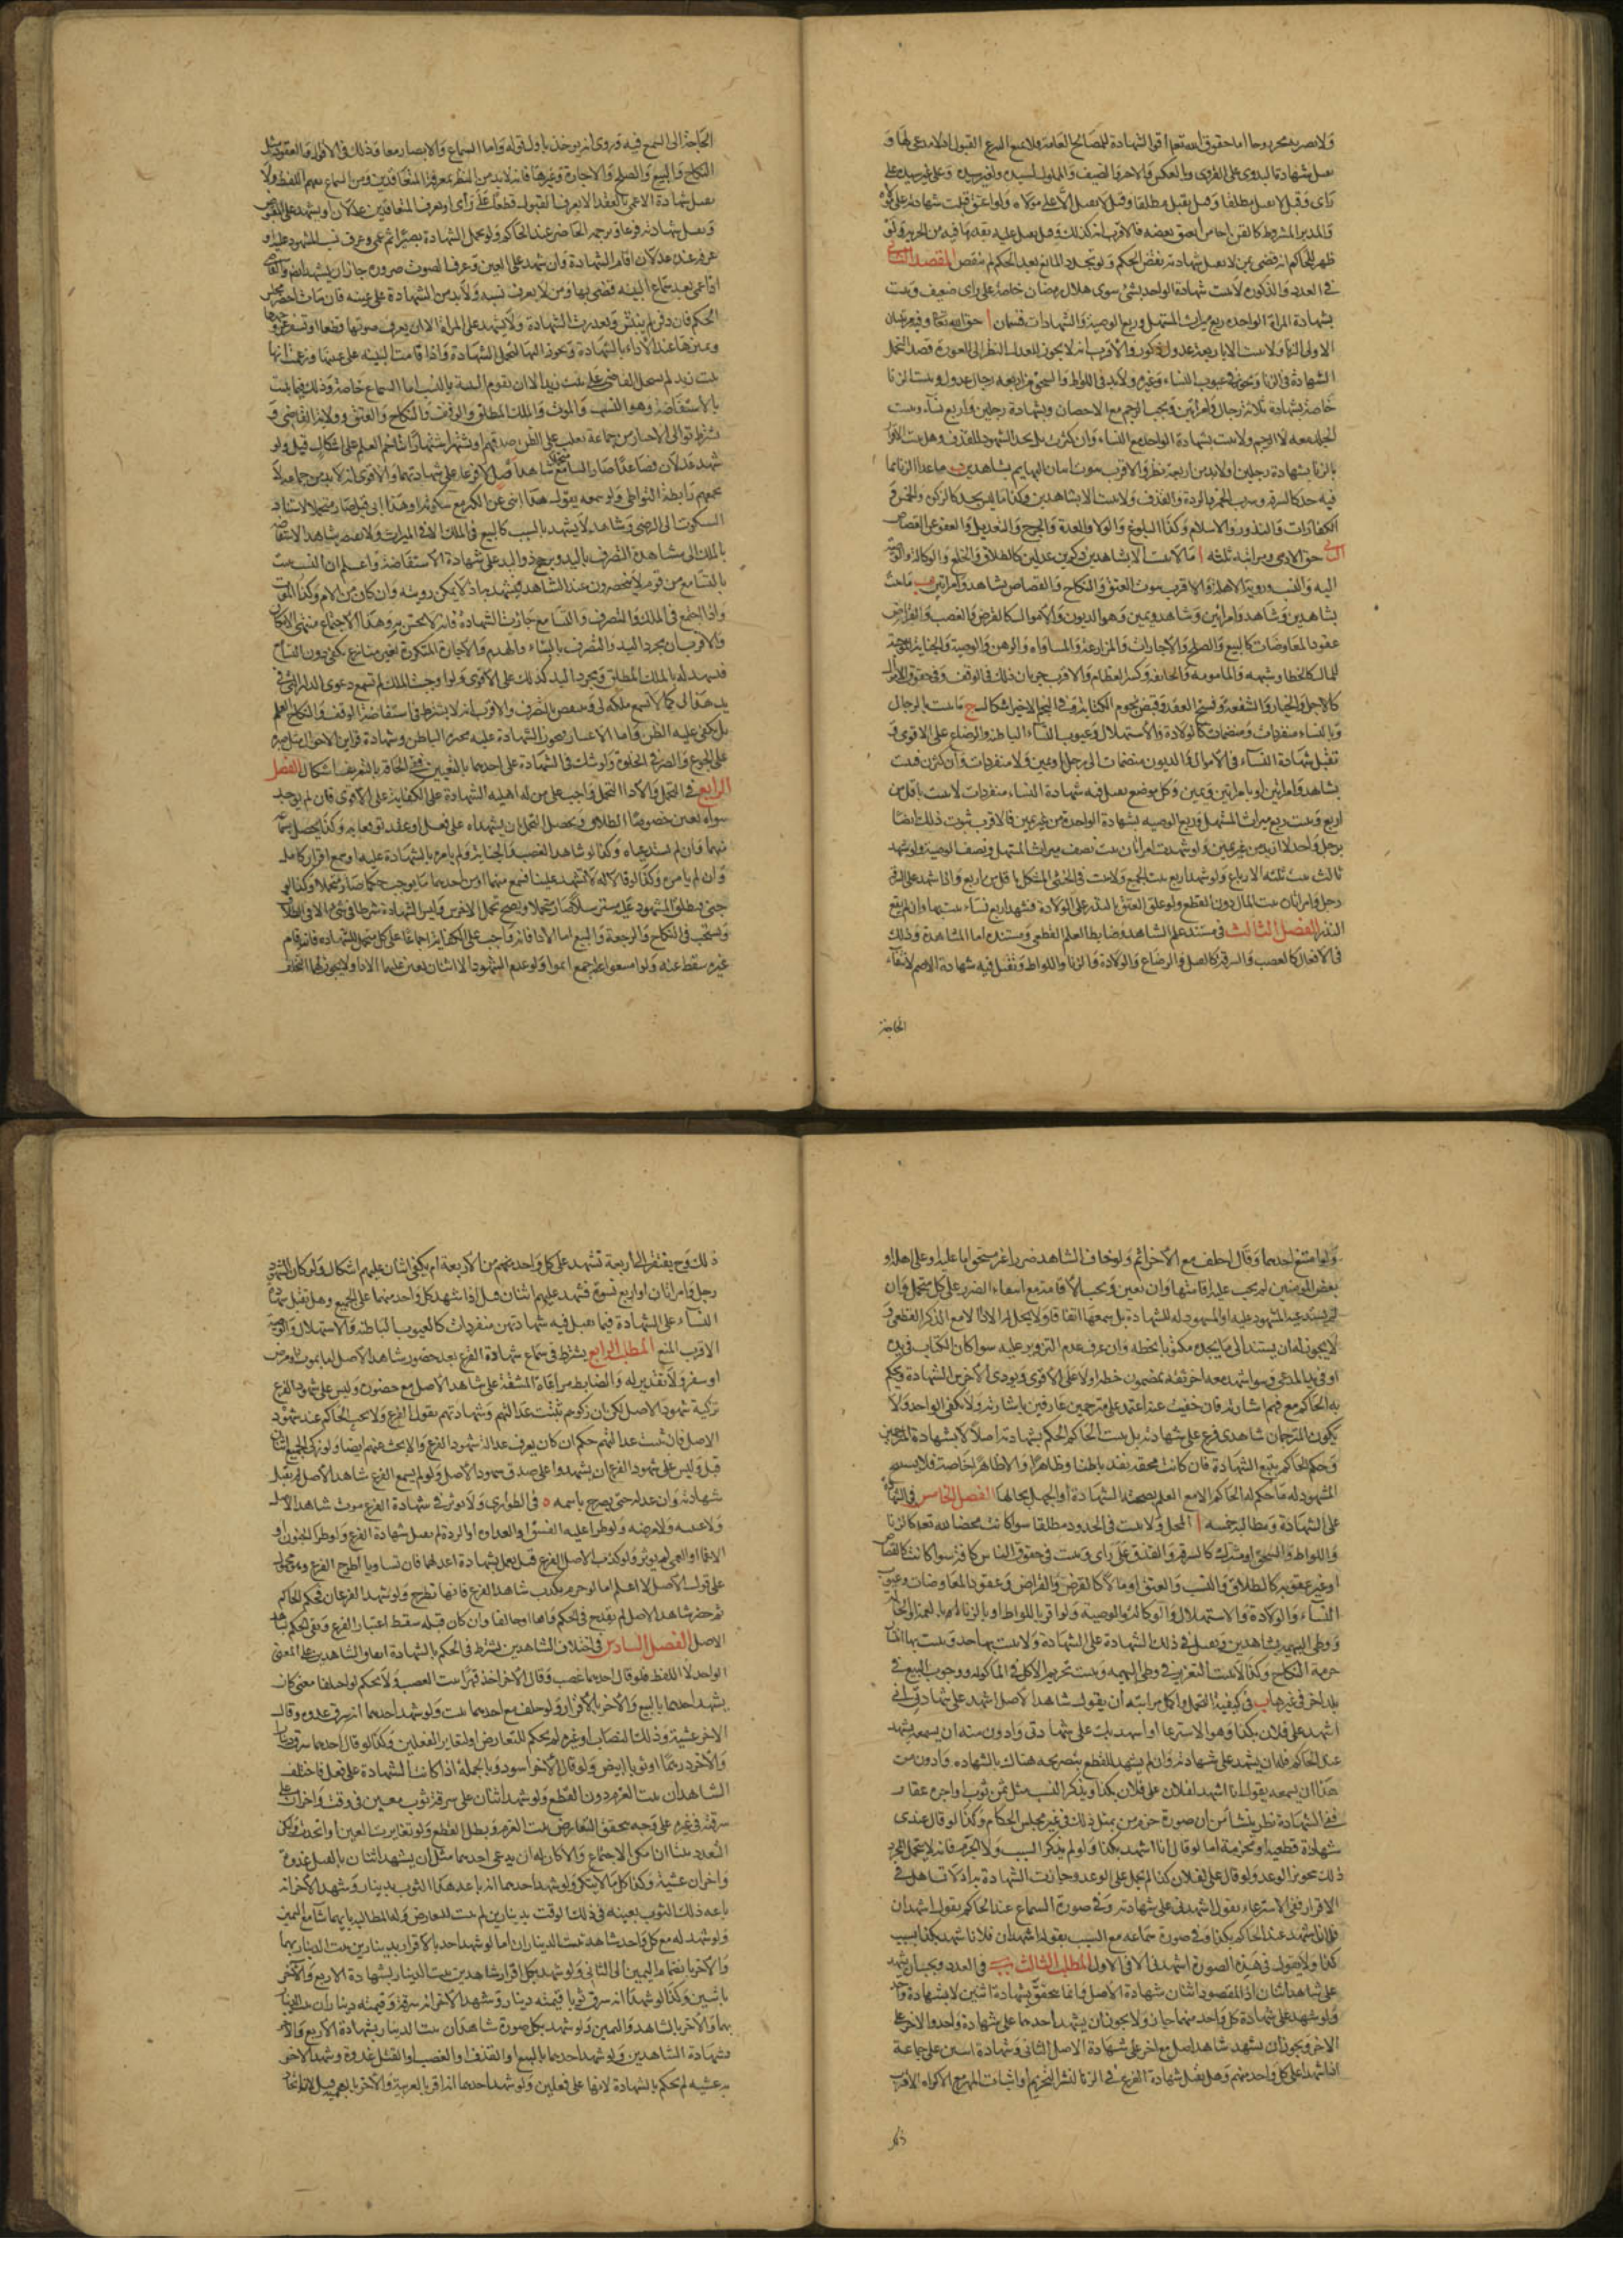 ولا يصير به مجروحا اما حقوق الله تعالى او الشهادة للمصالح العامة فلا يمنع التبرع القبول اذ لا مدعى لها و
تقبل شهادة البدوي على القروي وبالعكس والاجير والضيف والمملوك لسيده ولغير سيده وعلى غير سيده على
رأى وقيل لا يقبل مطلقا وقيل يقبل مطلقا وقيل لا يقبل الا على مولاه ولو اعتق قبلت شهادته على مولاه
والمدبر المشروط كالقن اما من اعتق بعضه فالاقرب انه كذلك وقيل يقبل عليه بقدر ما فيه من الحرية ولو
ظهر للحاكم انه قضى بمن لا يقبل شهادته نقض الحكم ولو تجدد المانع بعد الحكم لم ينقض المقصد الثاني
في العدد والذكورة لا يثبت شهادة الواحد بشئ سوى هلال رمضان خاصة على رأى ضعيف ويثبت
بشهادة المراة الواحدة ربع ميراث المستهل وربع الوصية والشهادات قسمان ا حق الله تعالى وفيه مرتبتان
الاولى الزنا ولا يثبت الا باربعة عدول ذكور والاقرب انه لا يجوز للعدل النظر الى العورة قصد التحمل
الشهادة في الزنا ويجوز في عيوب النساء وغيره ولا بد في اللواط والسحق من اربعة رجال عدول ويثبت الزنا
خاصة بشهادة ثلاثة رجال وامراتين ويجب الرجم مع الاحصان وبشهادة رجلين واربع نساء ويثبت
الجلد معه لا الرجم ولا يثبت بشهادة الواحد مع النساء وان كثرن بل يحد الشهود للقذف وهل يثبت الاقرار
بالزنا بشهادة رجلين او لابد من اربعة نظر والاقرب ثبوت اتيان البهايم بشاهدين ب ما عدا الزنا مما
فيه حد كالسرقة وشرب الخمر والردة والقذف ولا يثبت الا بشاهدين وكذا ما ليس بحد كالزكوة والخمس و
الكفارات والنذور والاسلام وكذا البلوغ والولاء والعدة والجرح والتعديل والعفو عن القصاص
الثاني حق الادمي ومراتبه ثلثة ا ما لا يثبت الا بشاهدين ذكرين عدلين كالطلاق والخلع والوكالة والوصية
اليه والنسب ورؤية الاهلة والاقرب ثبوت العتق والنكاح والقصاص بشاهد وامراتين ب ما يثبت
بشاهدين وشاهد وامراتين وشاهد ويمين وهو الديون والاموال كالقرض والغصب والقراض
عقود المعاوضات كالبيع والصلح والاجارات والمزارعة والمساقاة والرهن والوصية والجناية الموجبة
للمال كالخطا وشبهه والمامومة والجائفة وكسر العظام والاقرب جريان ذلك في الوقف وفي حقوق الاموال
كالاجل والخيار والشفعة وفسخ العقد وقبض نجوم الكتابة وفي النجم الاخير اشكال ج ما يثبت بالرجال
وبالنساء منفردات ومنضمات كالولادة والاستهلال وعيوب النساء الباطنة والرضاع على الاقوى و
تقبل شهادة النساء في الاموال والديون منضمات الى رجل او يمين ولا منفردات وان كثرن فيثبت
بشاهد وامراتين او بامراتين ويمين وكل موضع يقبل فيه شهادة النساء منفردات لا يثبت باقل من
اربع ويثبت ربع ميراث المستهل وربع الوصية بشهادة الواحدة من غير يمين فالاقرب ثبوت ذلك ايضا
برجل واحد لا ازيد من غير يمين ولو شهدت امراتان يثبت نصف ميراث المستهل ونصف الوصية ولو شهد
ثالث يثبت ثلثه الارباع ولو شهد اربع يثبت الجميع ولا يثبت في الخنثى المشكل باقل من اربع واذا شهد على السرقة
رجل وامراتان يثبت المال دون القطع ولو علق العتق بالنذر على الولادة فشهد اربع نساء يثبت بها وان لم يقع
النذر الفصل الثالث في مستند علم الشاهد وضابط العلم القطعي ومستنده اما المشاهدة وذلك
في الافعال كالغصب والسرقة كالقتل والرضاع والولادة والزنا واللواط وتقبل فيه شهادة الاصم لانتفاء
الحاجة
الحاجة الى السمع فيه وروى انه يوخذ باول قوله واما السماع والابصار معا وذلك في الاقوال والعقود مثل
النكاح والبيع والصلح والاجارة وغيرها فانه لابد من النظر لمعرفة المتعاقدين ومن السماع لفهم اللفظ ولا
تقبل شهادة الاعمى بالعقد الا بعرف القبول قطعا على رأى او بعرف المتعاقدين عدلان او يشهد على المقبوض
وتقبل شهادته فرعا وترجمة الحاضر عند الحاكم ولو تحمل الشهادة بصيرا ثم عمي وعرف نسب المشهود عليه او
عرفه عنده عدلان اقام الشهادة وان شهد على العين وعرف الصوت ضرورة جاز ان يشهد ايضا والقاضي
اذا عمي بعد سماع البينة قضى بها ومن لا يعرف نسبه ولا بد من الشهادة على عينه فان مات احضر مجلس
الحكم فان دفن لم ينبش وتعذرت الشهادة ولا يشهد على المراة الا ان يعرف صوتها قطعا او تسفر عن وجهها
ويميزها عند الاداء بالشهادة ويجوز النظر اليها لتحمل الشهادة واذا قامت البينة على عينها وزعمت انها
بنت زيد لم يسجل القاضي على بنت زيد الا ان تقوم البينة بالنسب اما السماع خاصة وذلك فيما يثبت
بالاستفاضة وهو النسب والموت والملك المطلق والوقف والنكاح والعتق وولاية القاضي و
يشترط توالى الاخبار من جماعة يغلب على الظن صدقهم او يشتهر اشتهارا يتاخم العلم على اشكال قيل ولو
شهد عدلان فصاعدا صار السامع متحملا وشاهد اصل لا فرعا على شهادتهما والاقوى انه لابد من جماعة لا
يجمعهم رابطة التواطى ولو سمعه يقول هذا ابني عن الكبير مع سكوته او هذا ابي قيل صار متحملا لاستناد
السكوت الى الرضى وشاهد لا يشهد بالسبب كالبيع في الملك الا في الميراث ولا يفتقر شاهد الاستفاضة
بالملك الى مشاهدة التصرف باليد ويرجح ذو اليد على شهادة الاستفاضة واعلم ان النسب يثبت
بالتسامع من قوم لا ينحصرون عند الشاهد فيشهد به اذ لا يمكن رويته وان كان من الام وكذا الموت
واذا اجتمع في الملك والتصرف والتسامع جازت الشهادة فانه لا يحس به وهذا الاجتماع منتهى الامكان
والاقرب ان مجرد اليد والتصرف بالبناء والهدم والاجارة المتكررة بغير منازع يكفى دون التسامح
فيشهد له بالملك المطلق وبمجرد اليد كذلك على الاقوى ولو اوجبت الملك لم تسمع دعوى الدار التي في
يد هذا لي كما لا تسمع ملكه لي وينقض بالتصرف والاقرب انه لا يشترط في استفاضة الوقف والنكاح العلم
بل يكفى غلبة الظن واما الاعسار فيجوز الشهادة عليه بخبرة الباطن وشهادة قراين الاحوال مثل صبره
على الجوع والضر في الخلوة ولو شك في الشهادة على احدهما بالتعيين ففي الحاقه بالتعريف اشكال الفصل
الرابع في التحمل والاداء التحمل واجب على من له اهلية الشهادة على الكفاية على الاقوى فان لم يوجد
سواه تعين خصوصا الطلاق ويحصل التحمل بان يشهداه على فعل او عقد يوقعانه وكذا يحصل بسماعه
منهما وان لم يستدعياه وكذا لو شاهد الغصب والجناية ولم يامره بالشهادة عليه او سمع اقرار كامل
وان لم يامره وكذا لو قالا له لا تشهد علينا فسمع منهما او من احدهما ما يوجب حكما صار متحملا وكذا لو
خبي فنطق المشهود عليه مسترسلا صار متحملا ويصح تحمل الاخرس وليس الشهادة شرطا في شئ الا في الطلاق
ويستحب في النكاح والرجعة والبيع اما الاداء فانه واجب على الكفاية اجماعا على كل متحمل للشهادة فان قام
غيره سقط عنه ولو امتنعوا اجمع اثموا ولو عدم الشهود الا اثنان تعين عليهما الاداء ولا يجوز لهما التخلف
ولو امتنع احدهما وقال احلف مع الاخر اثم ولو خاف الشاهد ضررا غير مستحق اما عليه او على اهله او
بعض المومنين لم يجب عليه اقامتها وان تعين ويجب الاقامة مع انتفاء الضرر على كل متحمل وان
لم يستدعه المشهود عليه او المشهود له للشهادة بل سمعها اتفاقا ولا يحل له الاداء الا مع الذكر القطعي و
لا يجوز له ان يستند الى ما يجده مكتوبا بخطه وان عرف عدم التزوير عليه سوا كان الكتاب في يده
او في يد المدعي وسوا شهد معه اخر ثقة بمضمون خطه او لا على الاقوى ويودى الاخرس الشهادة ويحكم
به الحاكم مع فهم اشارته فان خفيت عنه اعتمد على مترجمين عارفين باشارته ولا يكفى الواحد ولا
يكون المترجمان شاهدي فرع على شهادته بل يثبت الحاكم الحكم بشهادته اصلا لا بشهادة المترجمين
وحكم الحاكم يتبع الشهادة فان كانت محقة نفذ باطنا وظاهرا والا ظاهرا خاصة فلا يستبيح
المشهود له ما حكم له الحاكم الا مع العلم بصحة الشهادة او الجهل بحالها الفصل الخامس في الشهادة
على الشهادة ومطالبه خمسة ا المحل ولا يثبت في الحدود مطلقا سوا كانت محضا لله تعالى كالزنا
واللواط والسحق او مشتركة كالسرقة والقذف على رأى ويثبت في حقوق الناس كافة سوا كانت كالقصاص
او غير عقوبة كالطلاق والنسب والعتق او مالا كالقرض والقراض وعقود المعاوضات وعيوب
النساء والولادة والاستهلال والوكالة والوصية ولو اقر باللواط او بالزنا بالعمة او الخالة
او وطى البهيمة بشاهدين وتقبل في ذلك الشهادة على الشهادة ولا يثبت بها حد ويثبت بها انتشار
حرمة النكاح وكذا لا يثبت التعزير في وطى البهيمة ويثبت تحريم الاكل في الماكولة ووجوب البيع في
بلد اخر في غيرها ب في كيفية التحمل واكمل مراتبه ان يقول شاهد الاصل اشهد على شهادتي انني
اشهد على فلان بكذا وهو الاسترعاء او اشهدتك على شهادتي وادون منه ان يسمعه يشهد
عند الحاكم فله ان يشهد على شهادته وان لم يشهد للقطع بتصريحه هناك بالشهادة وادون من
هذا ان يسمعه يقول انا اشهد لفلان على فلان بكذا ويذكر السبب مثل ثمن ثوب او اجرة عقار
ففي الشهادة نظر ينشا من ان صورة جزم من يمثل ذلك في غير مجلس الحكام وكذا لو قال عندي
شهادة قطعية او مجزومة اما لو قال انا اشهد بكذا ولو لم يذكر السبب ولا الجزم فانه لا يتحمل لجرد
ذلك تجويز الوعد ولو قال على لفلان كذا لم يحمل على الوعد وجازت الشهادة به اذ لا تساهل في
الاقرار ففي الاسترعاء يقول اشهدني على شهادته وفي صورة السماع عند الحاكم يقول اشهد ان
فلانا شهد عند الحاكم بكذا وفي صورة سماعه مع السبب يقول اشهد ان فلانا شهد بكذا بسبب
كذا ولا يقول في هذه الصورة اشهدنا الا في الاول المطلب الثالث في العدد ويجب ان يشهد
على شاهد اثنان اذ المقصود اثبات شهادة الاصل وانما يتحقق بشهادة اثنين لا بشهادة واحد
ولو شهد على شهادة كل واحد منهما جاز ولا يجوز ان يشهد احدهما على شهادة واحد والاخر على
الاخر ويجوز ان يشهد شاهد اصل مع اخر على شهادة الاصل الثاني وشهادة اثنين على جماعة
اذا شهدا على كل واحد منهم وهل تقبل شهادة الفرع في الزنا لنشر التحريم او اثبات المهر مع الاكراه الاقرب
ذلك
ذلك وح يفتقر الى اربعة تشهد على كل واحد منهم من الاربعة ام يكفى اثنان عليهم اشكال ولو كان الشهود
رجل وامراتان او اربع نسوة فشهد عليهم اثنان قبل اذا شهد كل واحد منهما على الجميع وهل تقبل شهادة
النساء على الشهادة فيما تقبل فيه شهادتهن منفردات كالعيوب الباطنة والاستهلال والوصية
الاقرب المنع المطلب الرابع يشترط في سماع شهادة الفرع تعذر حضور شاهد الاصل اما بموت او مرض
او سفر ولا تقدير له والضابط مراعاة المشقة على شاهد الاصل مع حضوره وليس على شهود الفرع
تزكية شهود الاصل لكن ان زكوهم تثبت عدالتهم وشهادتهم بقول الفرع ولا يجب الحاكم عند شهود
الاصل فان تثبت عدالتهم حكم ان كان يعرف عدالة شهود الفرع والا بحث عنهم ايضا ولو زكى الجميع اثنان
قبل وليس على شهود الفرع ان يشهدوا على صدق شهود الاصل ولو لم يسم الفرع شاهد الاصل لم تقبل
شهادته وان عدله حتى يصرح باسمه ه في الطوارى ولا يوثر في شهادة الفرع موت شاهد الاصل
ولا غيبته ولا مرضه ولو طرا عليه الفسق او العداوة او الردة لم تقبل شهادة الفرع ولو طرا الجنون او
الاغما او العمى لم يوثر ولو كذب الاصل الفرع قيل يعمل بشهادة اعدلهما فان تساويا اطرح الفرع وهو محمول
على قول الاصل لا اعلم اما لو جزم بكذب شاهد الفرع فانها تطرح ولو شهد الفرعان فحكم الحاكم
ثم حضر شاهد الاصل لم يقدح في الحكم وافقا او خالفا وان كان قبله سقط اعتبار الفرع وبقي الحكم بشاهد
الاصل الفصل السادس في اختلاف الشاهدين يشترط في الحكم بالشهادة اتفاق الشاهدين على المعنى
الواحد لا اللفظ فلو قال احدهما غصب وقال الاخر اخذ قهرا ثبت الغصب ولا يحكم لو اختلفا معنى كان
يشهد احدهما بالبيع والاخر بالاقرار ولو حلف مع احدهما ثبت ولو شهد احدهما انه سرق غدوة وقال
الاخر عشية وذلك النصاب او غيره لم يحكم للتعارض او لتغاير الفعلين وكذا لو قال احدهما سرق دينارا
والاخر درهما او ثوبا ابيض ولو قال الاخر اسود وبالجملة اذا كانت الشهادة على فعل فاختلف
الشاهدان يثبت الغرم دون القطع ولو شهد اثنان على سرقة ثوب معين في وقت واخران على
سرقته في غيره على وجه يتحقق التعارض يثبت الغرم وبطل القطع ولو تغايرت العين او اتحدت ويمكن
التعدد ثبتا ان امكن الاجتماع والا كان له ان يدعي احدهما مثل ان يشهد اثنان بالفعل غدوة
واخران عشية وكذا كل ما لا يتكرر ولو شهد احدهما انه باعه هذا الثوب بدينار وشهد الاخر انه
باعه ذلك الثوب بعينه في ذلك الوقت بدينارين لم يثبت للتعارض وله المطالبة بايهما شاء مع اليمين
ولو شهد له مع كل واحد شاهد ثبت الديناران اما لو شهد احدهما بالاقرار بدينارين يثبت الدينار بهما
والاخر بانضمام اليمين الى الثاني ولو شهد بكل اقرار شاهدين يثبت الدينار بشهادة الاربع والاخر
باثنين وكذا لو شهد انه سرق ثوبا قيمته دينار وشهد الاخر انه سرقه وقيمته ديناران يثبت الدينار
بهما والاخر بالشاهد واليمين ولو شهد بكل صورة شاهدان يثبت الدينار بشهادة الاربع والاخر
بشهادة الشاهدين ولو شهد احدهما بالبيع او القذف او الغصب او القتل غدوة وشهد الاخر
به عشية لم يحكم بالشهادة لانها على فعلين ولو شهد احدهما انه اقر بالعربية والاخر بالعجمية قبل لانه اخبار